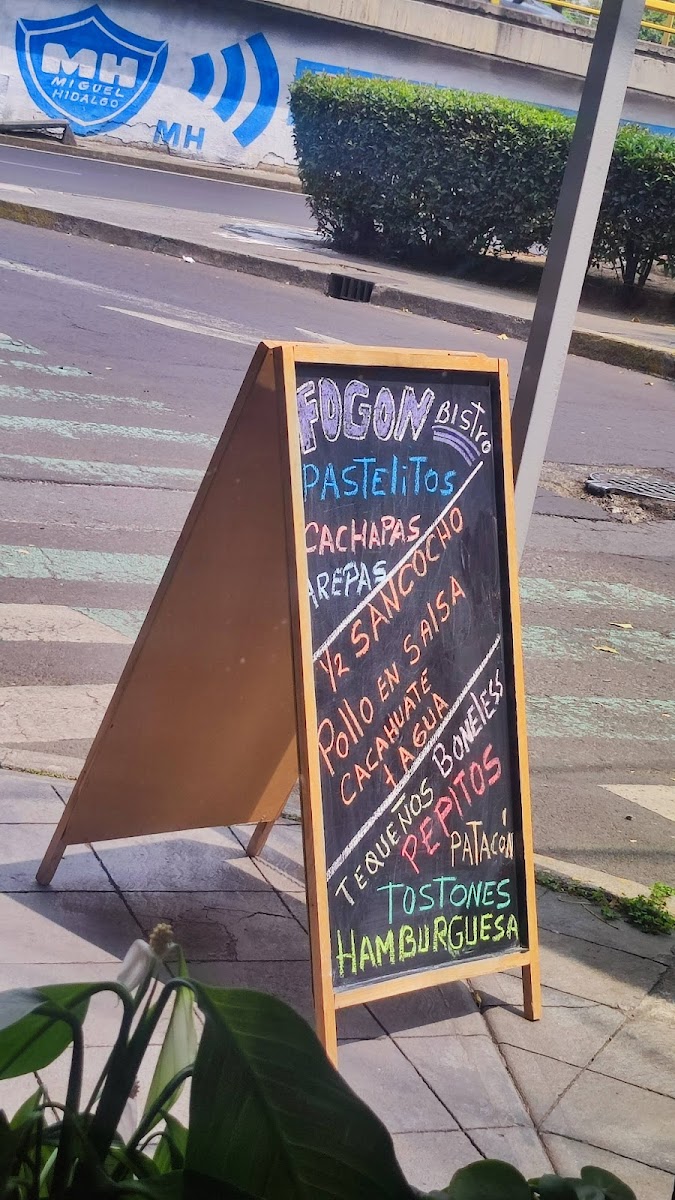 MH
MIGUEL
HIDALGO
MH
FOGON BISTRO
PASTELITOS
CACHAPAS
AREPAS
1/2 SANCOCHO
POLLO EN SALSA
CACAHUATE
+ AGUA
TEQUEÑOS BONELESS
PEPITOS
PATACÓN
TOSTONES
HAMBURGUESA